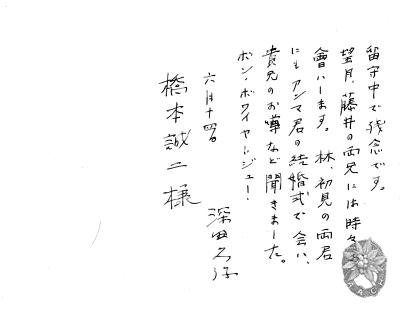 留守中で残念です。
望月、藤井の両兄には時々お
會ひします。林、初見の両君
にもアシマ君の結婚式で会い、
貴兄のお噂など聞きました。
ボン・ボワイヤージュー!
六月十四日
深田久弥
橋本誠二様